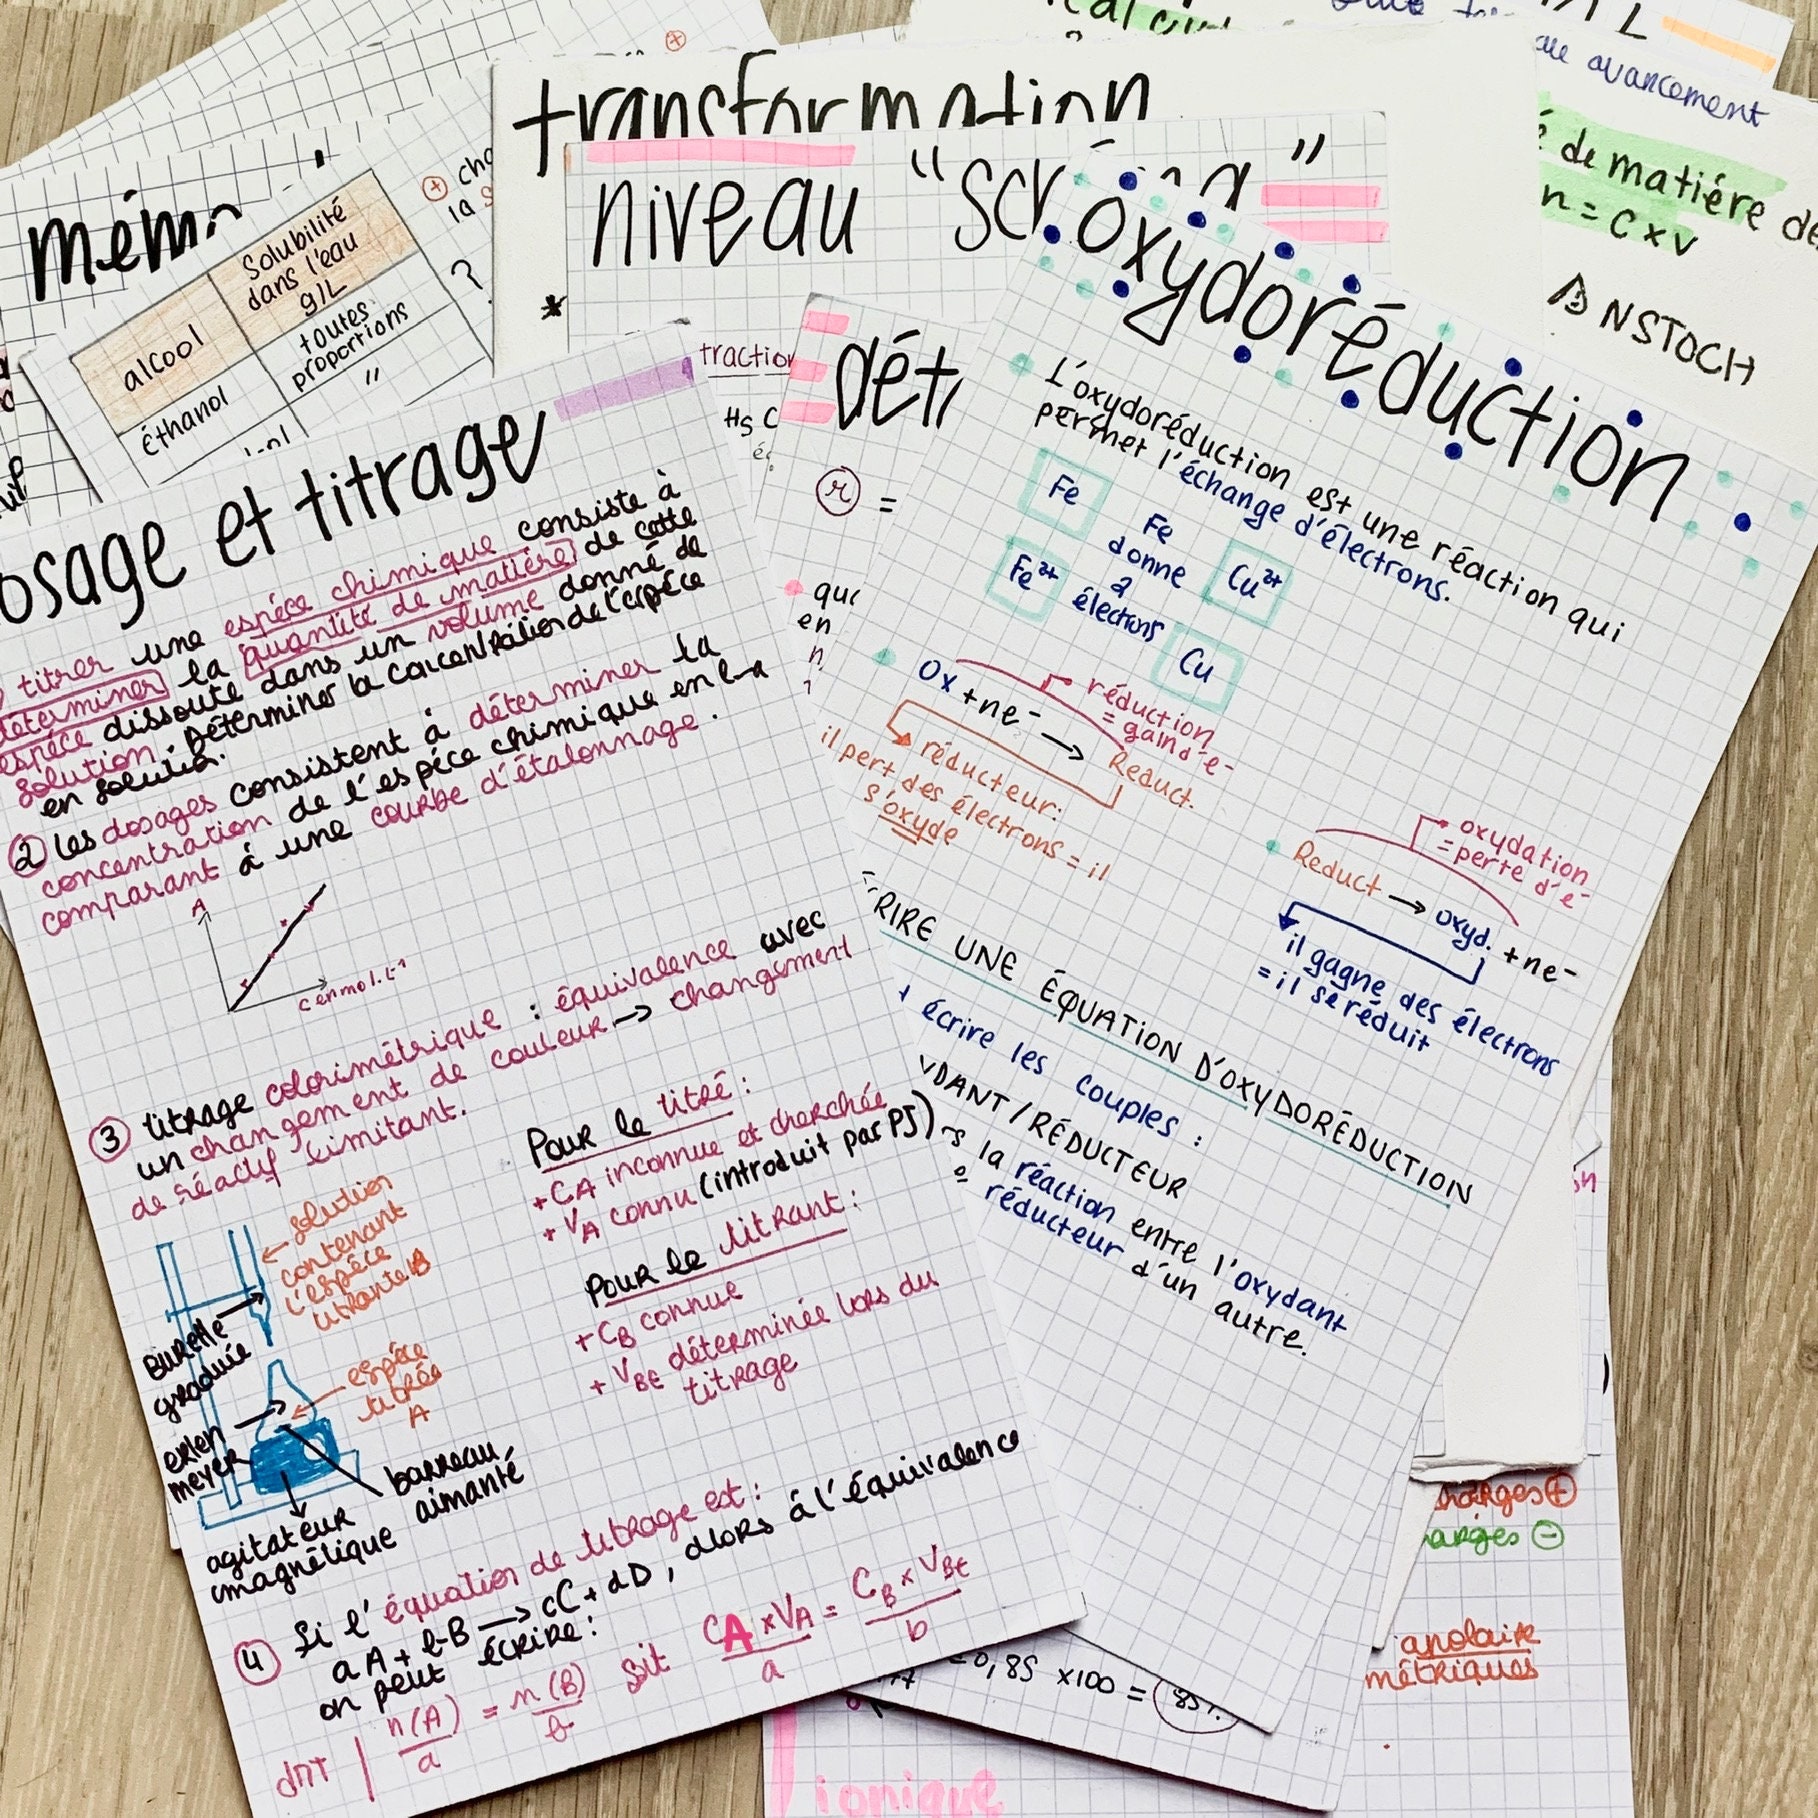 transformation
niveau "
mém
alcool
Solubilité
dans l'eau
g/L
éthanol
toutes
proportions
"
?
⊕
la
avancement
de matière de
n = C x V
NSTOCH
traction
dét
r =
en
osage et titrage
titrer une espéce chimique consiste à
déterminer la quantité de matière de cette
espéce dissoute dans un volume donné de
solution. Déterminer la concentration de l'espéce
en solution.
② Les dosages consistent à déterminer la
concentration de l'espéce chimique en l-a
comparant à une courbe d'étalonnage.
A
C en mol.L-1
③ titrage colorimétrique : équivalence avec
un changement de couleur → changement
de réactif limitant.
solution
contenant
l'espéce
titrante B
Burette
graduée
espéce
titrée
A
erlen
meyer
barreau
aimanté
agitateur
magnétique
Pour le titré :
+ CA inconnue et cherchée
+ VA connu (introduit par PJ)
Pour le titrant :
+ CB connue
+ VBE déterminée lors du
titrage
④ Si l'équation de titrage est :
aA + bB → cC + dD, alors à l'équivalence
on peut écrire :
n(A)/a = n(B)/b soit CA x VA/a = CB x VBE/b
oxydoréduction
L'oxydoréduction est une réaction qui
permet l'échange d'électrons.
Fe
Fe2+
Fe
donne
2
électrons
Cu2+
Cu
Ox + ne- → Reduct.
réduction
= gain d'e-
réducteur:
il pert des électrons = il
s'oxyde
Reduct → oxyd. + ne-
oxydation
= perte d'e-
il gagne des électrons
= il se réduit
RIRE UNE ÉQUATION D'OXYDORÉDUCTION
écrire les couples :
DANT/RÉDUCTEUR
la réaction entre l'oxydant
réducteur d'un autre.
harges ⊕
arges ⊖
apolaire
métriques
0,85 x100 = 85%
ionique